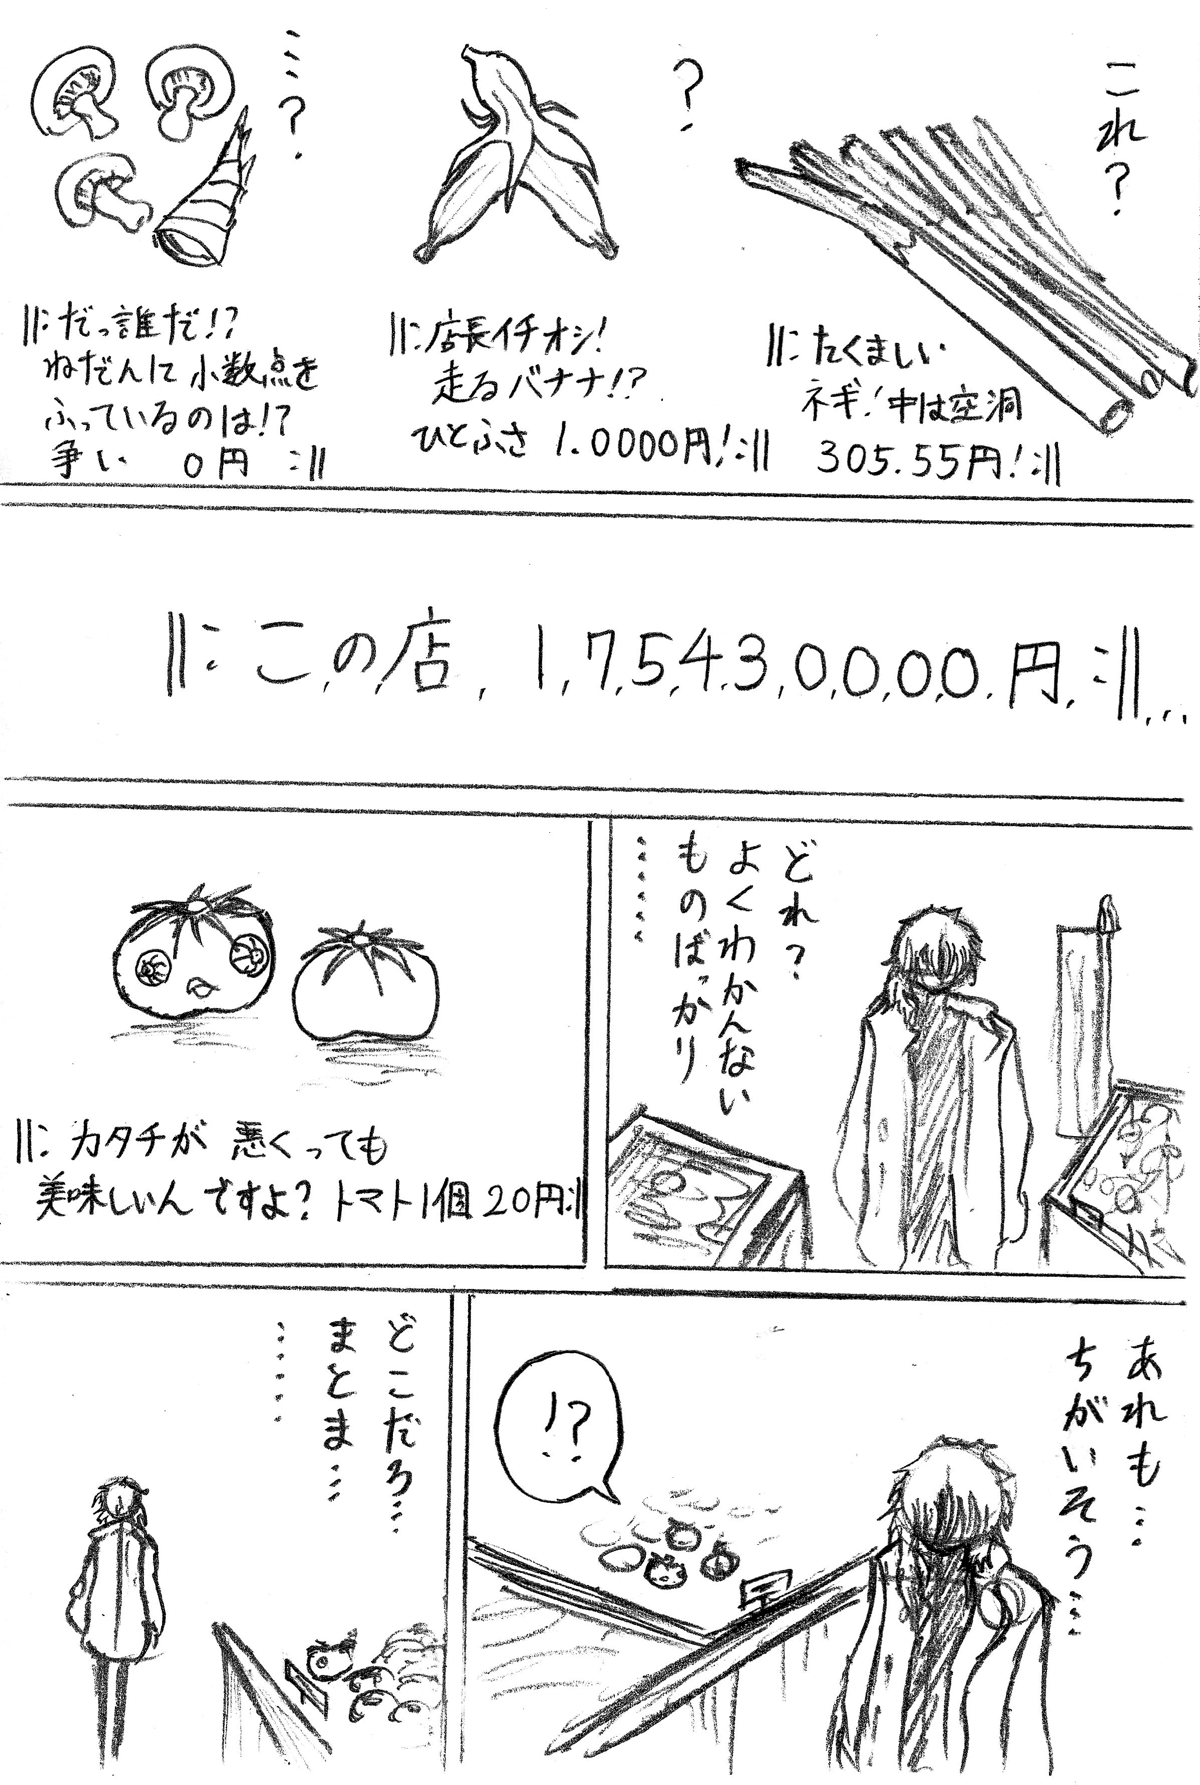 これ?
𝄆たくましい
ネギ!中は空洞
305.55円!𝄇
?
𝄆店長イチオシ!
走るバナナ!?
ひとふさ 1.0000円!𝄇
…?
𝄆だっ誰だ!?
ねだんに小数点を
ふっているのは!?
争い 0円 𝄇
𝄆こ,の,店, 1,7,5,4,3,0,0,0,0.円,𝄇...
どれ?
よくわかんない
ものばっかり
……
𝄆カタチが悪くっても
美味しいんですよ?トマト1個20円𝄇
あれも…
ちがいそう…
!?
どこだろ…
まとま…
……